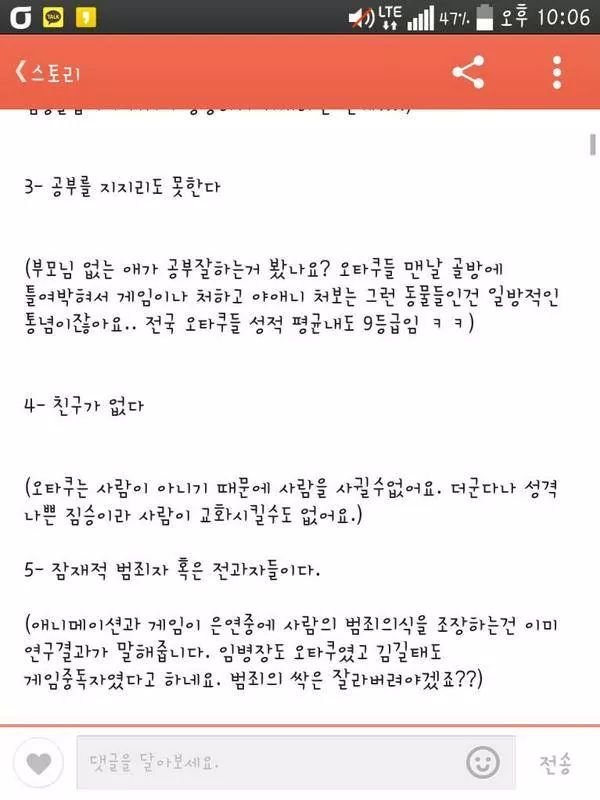 TALK
LTE 47% 오후 10:06
스토리
3- 공부를 지지리도 못한다
(부모님 없는 애가 공부잘하는거 봤나요? 오타쿠들 맨날 골방에
틀여박혀서 게임이나 처하고 야애니 처보는 그런 동물들인건 일방적인
통념이잖아요.. 전국 오타쿠들 성적 평균내도 9등급임 ㅋㅋ)
4- 친구가 없다
(오타쿠는 사람이 아니기 때문에 사람을 사귈수없어요. 더군다나 성격
나쁜 짐승이라 사람이 교화시킬수도 없어요.)
5- 잠재적 범죄자 혹은 전과자들이다.
(애니메이션과 게임이 은연중에 사람의 범죄의식을 조장하는건 이미
연구결과가 말해줍니다. 임병장도 오타쿠였고 김길태도
게임중독자였다고 하네요. 범죄의 싹은 잘라버려야겠죠??)
댓글을 달아보세요.
전송